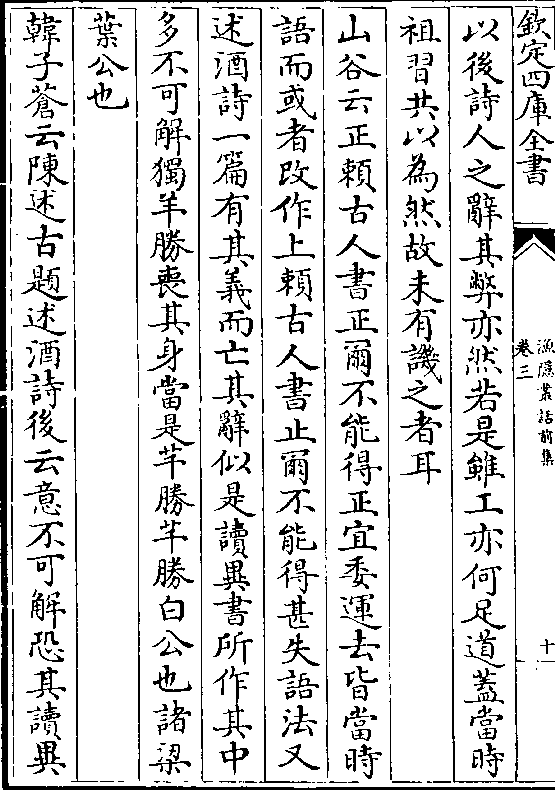 欽定四庫全書
漁隱叢話前集
卷三
十
以後詩人之辭其弊亦然若是雖工亦何足道蓋當時
祖習共以為然故未有譏之者耳
山谷云正賴古人書正爾不能得正宜委運去皆當時
語而或者改作上賴古人書止爾不能得甚失語法又
述酒詩一篇有其義而亡其辭似是讀異書所作其中
多不可解獨羊勝喪其身當是芊勝芊勝白公也諸梁
葉公也
韓子蒼云陳述古題述酒詩後云意不可解恐其讀異